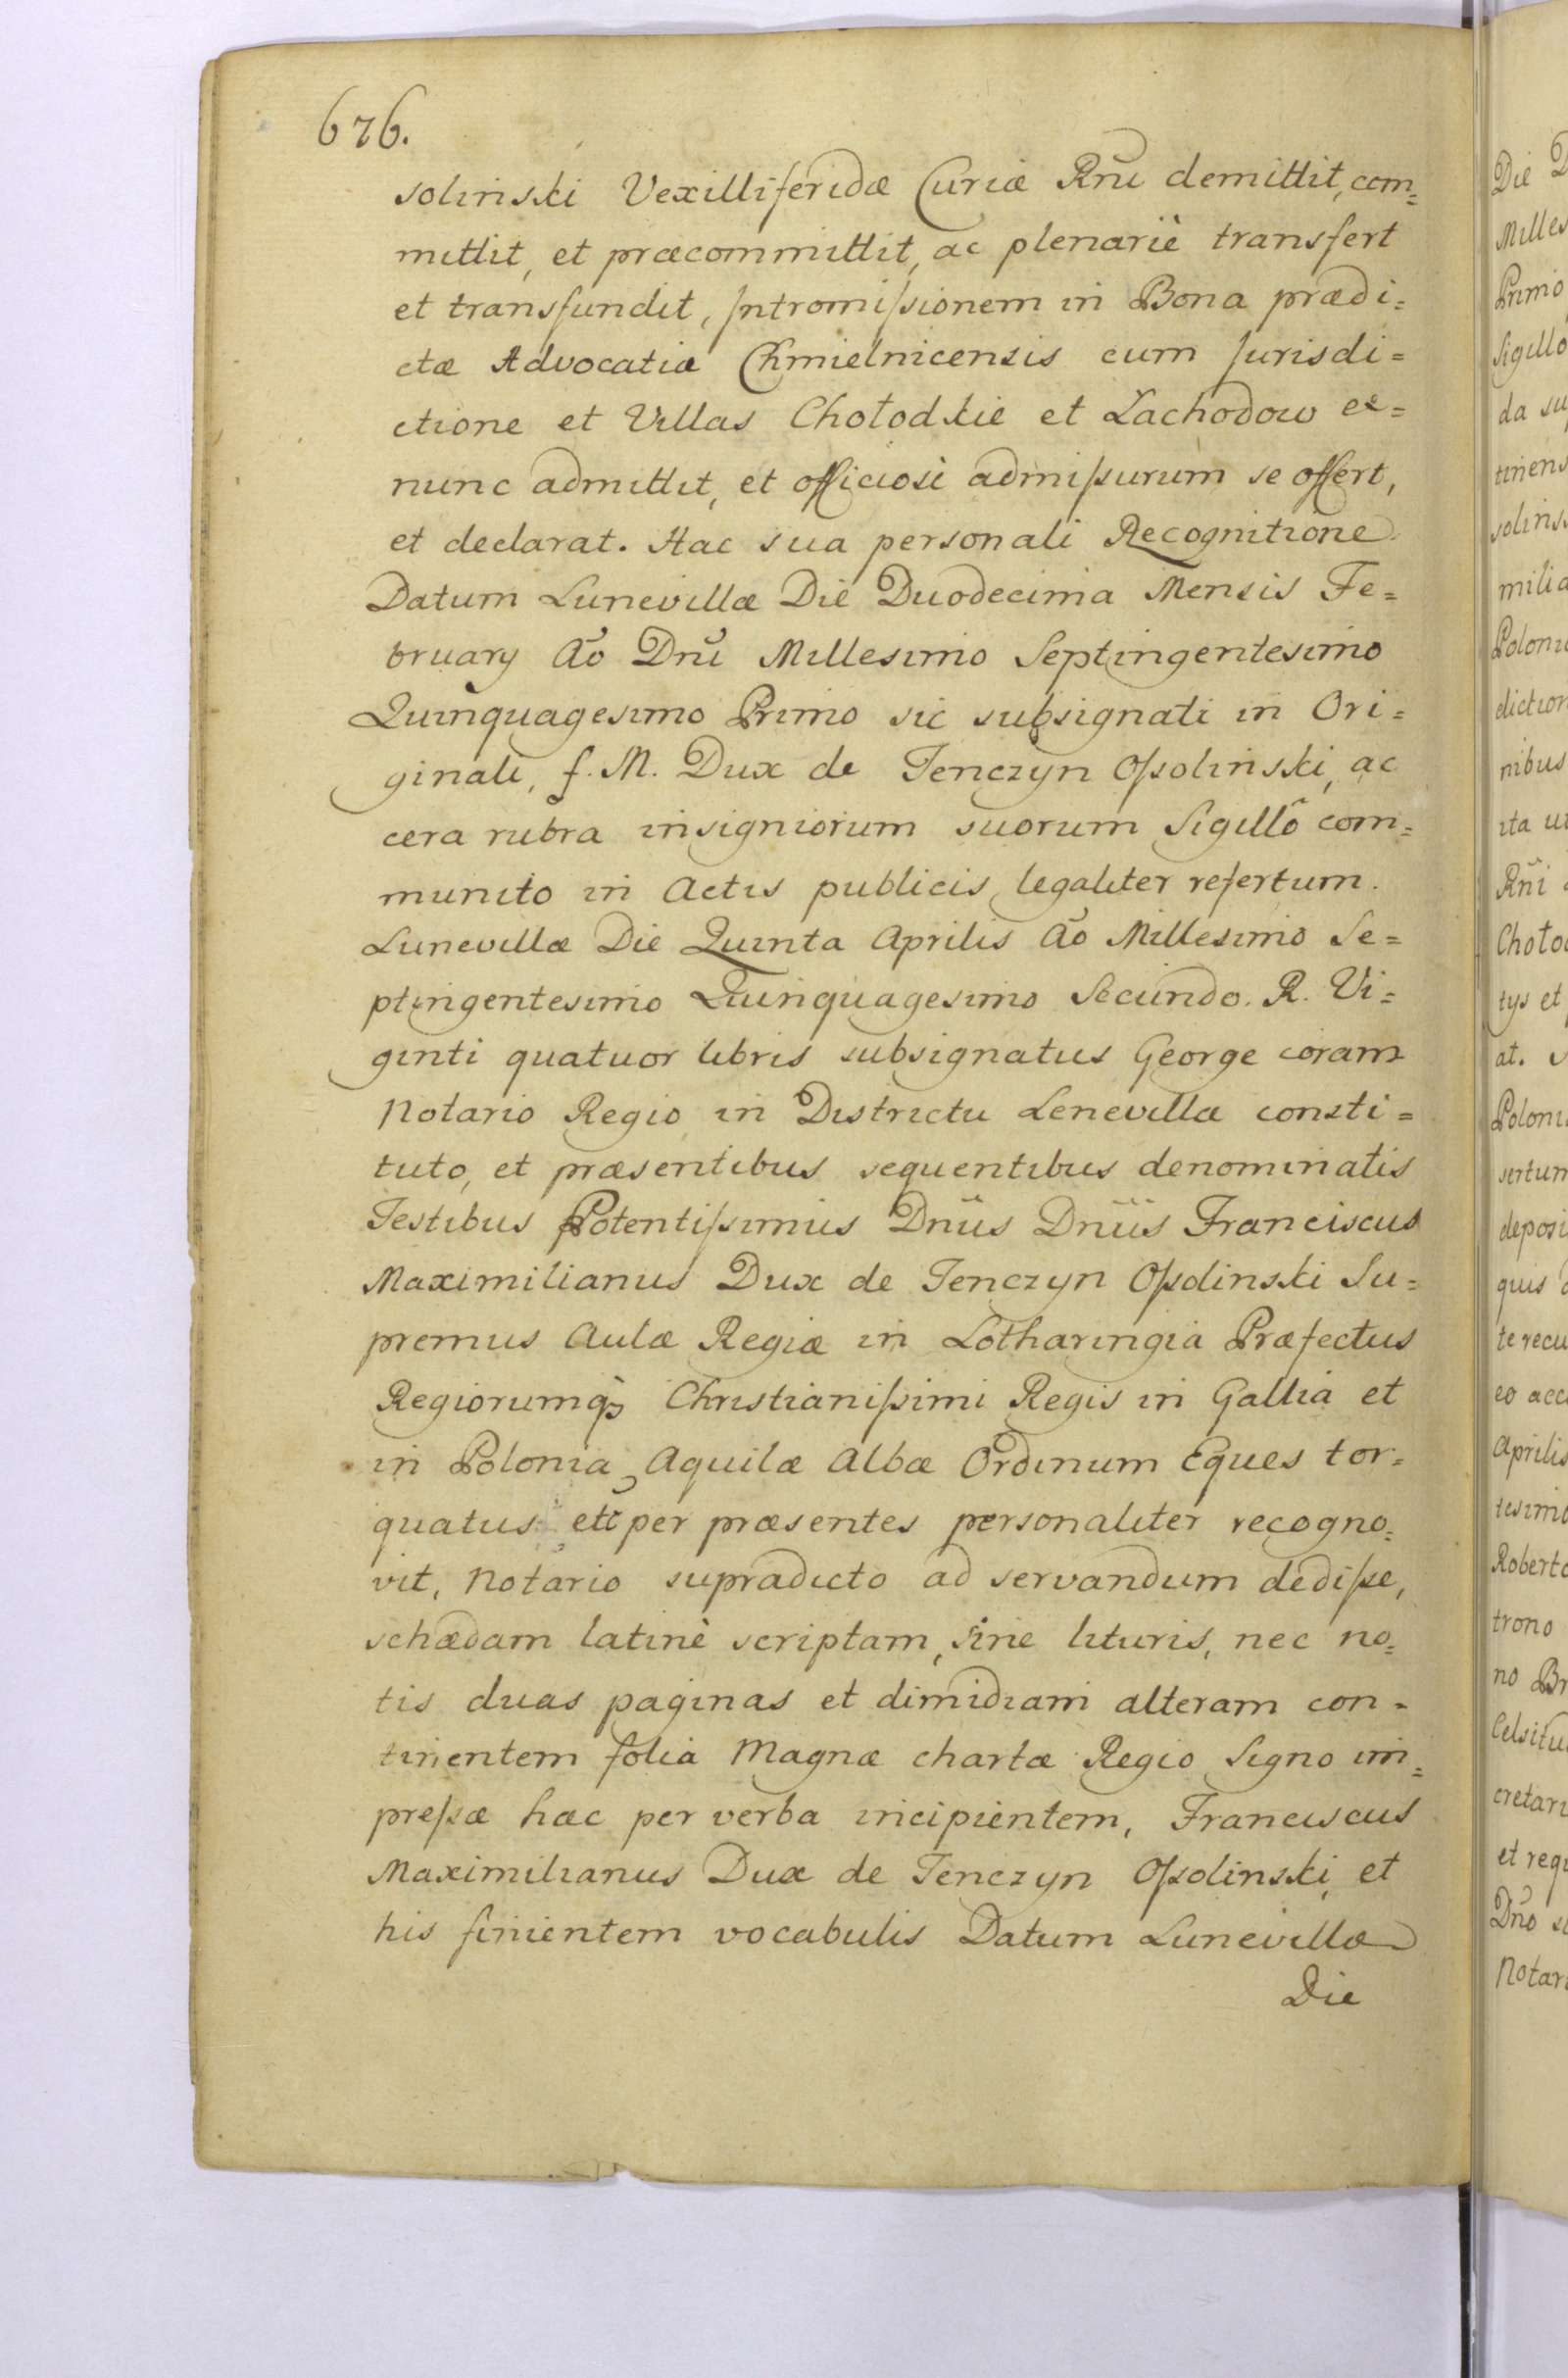 676.
solinski Vexilliferidæ Curiæ Rñi demittit, com=
mittit, et præcommittit, ac plenariè transfert
et transfundit, Intromiſsionem in Bona prædi=
ctæ Advocatiæ Chmielnicensis cum Jurisdi=
ctione et Villas Chotodkie et Lachodow ex=
nunc admittit, et officiosè admiſsurum se offert,
et declarat. Hac sua personali Recognitione
Datum Lunevillæ Die Duodecima Mensis Fe=
bruarÿ Aõ Dñi Millesimo Septingentesimo
Quinquagesimo Primo sic subsignati in Ori=
ginali, f. M. Dux de Tenczyn Oſsolinski, ac
cera rubra insigniorum suorum Sigillô com=
munito in Actis publicis legaliter refertum.
Lunevillæ Die Quinta Aprilis Aõ Millesimo Se=
ptingentesimo Quinquagesimo Secundo. R. Vi=
ginti quatuor libris subsignatus George coram
Notario Regio in Districtu Lenevillæ consti=
tuto, et præsentibus sequentibus denominatis
Testibus Potentiſsimus Dnus Dnus Franciscus
Maximilianus Dux de Tenczyn Oſsolinski Su=
premus Aulæ Regiæ in Lotharingia Præfectus
Regiorumq̀ Christianiſsimi Regis in Gallia et
in Polonia Aquilæ Albæ Ordinum Eques tor=
quatus etc per præsentes personaliter recogno=
vit, Notario supradicto ad servandum dediſse,
schædam latinè scriptam, sine lituris, nec no=
tis duas paginas et dimidiam alteram con=
tinentem folia Magnæ chartæ Regio Signo im=
preſsæ hæc per verba incipientem, Franciscus
Maximilianus Dux de Tenczyn Oſsolinski, et
his finientem vocabulis Datum Lunevillæ
Die
Die
Milles
Primo
Sigillo
da su
tinens
solins
milia
Poloni
diction
nibus
ita ut
Rñi
Choto
tys et
at.
Poloni
sertum
deposi
quis
te recu
eo acc
Aprilis
tesimo
Roberto
trono
no Br
Celsitu
cretari
et requ
Dño
Notar